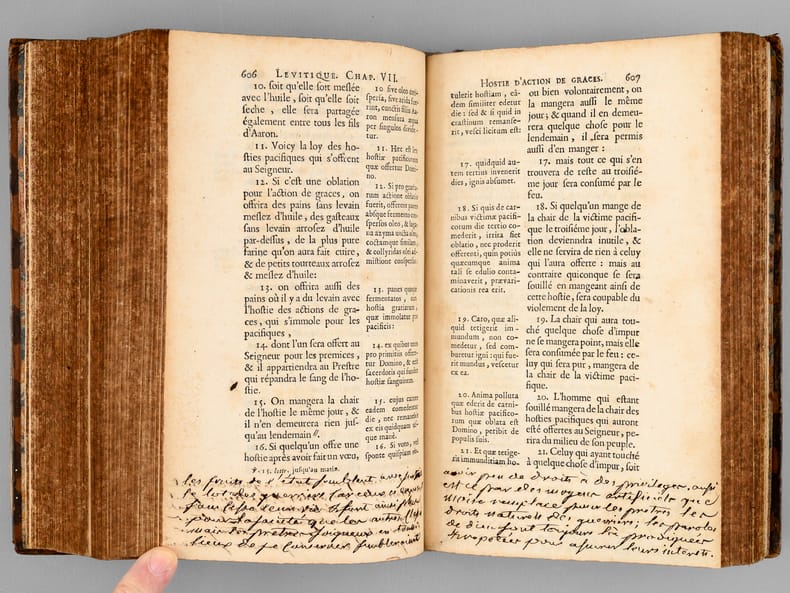 606 LEVITIQUE. CHAP. VII.
10. soit qu'elle soit meslée
avec l'huile, soit qu'elle soit
seche, elle sera partagée
également entre tous les fils
d'Aaron.
11. Voicy la loy des ho-
sties pacifiques qui s'offrent
au Seigneur.
12. Si c'est une oblation
pour l'action de graces, on
offrira des pains sans levain
meslez d'huile, des gasteaux
sans levain arrosez d'huile
par-dessus, de la plus pure
farine qu'on aura fait cuire,
& de petits tourteaux arrosez
& meslez d'huile:
13. on offrira aussi des
pains où il y a du levain avec
l'hostie des actions de gra-
ces, qui s'immole pour les
pacifiques,
14. dont l'un sera offert au
Seigneur pour les premices,
& il appartiendra au Prestre
qui répandra le sang de l'ho-
stie.
15. On mangera la chair
de l'hostie le même jour, &
il n'en demeurera rien jus-
qu'au lendemain
16. Si quelqu'un offre une
hostie après avoir fait un vœu,
10 sive oleo
sive
Aaron mensura
per singulos
tur.
11. Hæc est
hostiæ pacificorum
quæ offertur Domi-
no.
12. Si pro
actione
fuerit, offerent
absque fermento
spersos oleo, &
na azyma uncta oleo,
coctamque similam,
& collyridas olei ad-
mistione conspersas
13. panes quoque
fermentatos, cum
hostia gratiarum,
quæ immolatur pro
pacificis:
14. ex quibus unus
pro primitiis offere-
tur Domino, & erit
sacerdotis qui fundet
hostiæ sanguinem.
15. cujus carnes
eadem comedentur
die, nec remanebit
ex eis quidquam us-
que mane.
16. Si voto, vel
sponte quispiam
℣. 15. lettr. jusqu'au matin.
HOSTIE D'ACTION DE GRACES. 607
tulerit hostiam, eâ-
dem similiter edetur
die: sed & si quid in
crastinum remanse-
rit, vesci licitum est:
17. quidquid au-
tem tertius invenerit
dies, ignis absumet.
18. Si quis de car-
nibus victimæ pacifi-
corum die tertio co-
mederit, irrita fiet
oblatio, nec proderit
offerenti, quin potiùs
quæcumque anima
tali se edulio conta-
minaverit, prævari-
cationis rea erit.
19. Caro, quæ ali-
quid tetigerit im-
mundum, non co-
medetur, sed com-
buretur igni: qui fue-
rit mundus, vescetur
ex ea.
20. Anima polluta
quæ ederit de carni-
bus hostiæ pacifico-
rum quæ oblata est
Domino, peribit de
populis suis.
21. Et quæ tetige-
rit immunditiam ho-
ou bien volontairement, on
la mangera aussi le même
jour; & quand il en demeu-
rera quelque chose pour le
lendemain, il sera permis
aussi d'en manger:
17. mais tout ce qui s'en
trouvera de reste au troisié-
me jour sera consumé par le
feu.
18. Si quelqu'un mange de
la chair de la victime pacifi-
que le troisiéme jour, l'obla-
tion deviendra inutile, &
elle ne servira de rien à celuy
qui l'aura offerte: mais au
contraire quiconque se sera
souillé en mangeant ainsi de
cette hostie, sera coupable du
violement de la loy.
19. La chair qui aura tou-
ché quelque chose d'impur
ne se mangera point, mais elle
sera consumée par le feu: ce-
luy qui sera pur, mangera de
la chair de la victime paci-
fique.
20. L'homme qui estant
souillé mangera de la chair des
hosties pacifiques qui auront
esté offertes au Seigneur, pe-
rira du milieu de son peuple.
21. Celuy qui ayant touché
à quelque chose d'impur, soit
avoir peu de droits a des privileges, aussi
est ce par des moyens artificiels que
moise remplace pour les pretres les
droits naturels des guerriers; les paroles
de dieu sont toujours là prodiguées
pour assurer leurs interets.